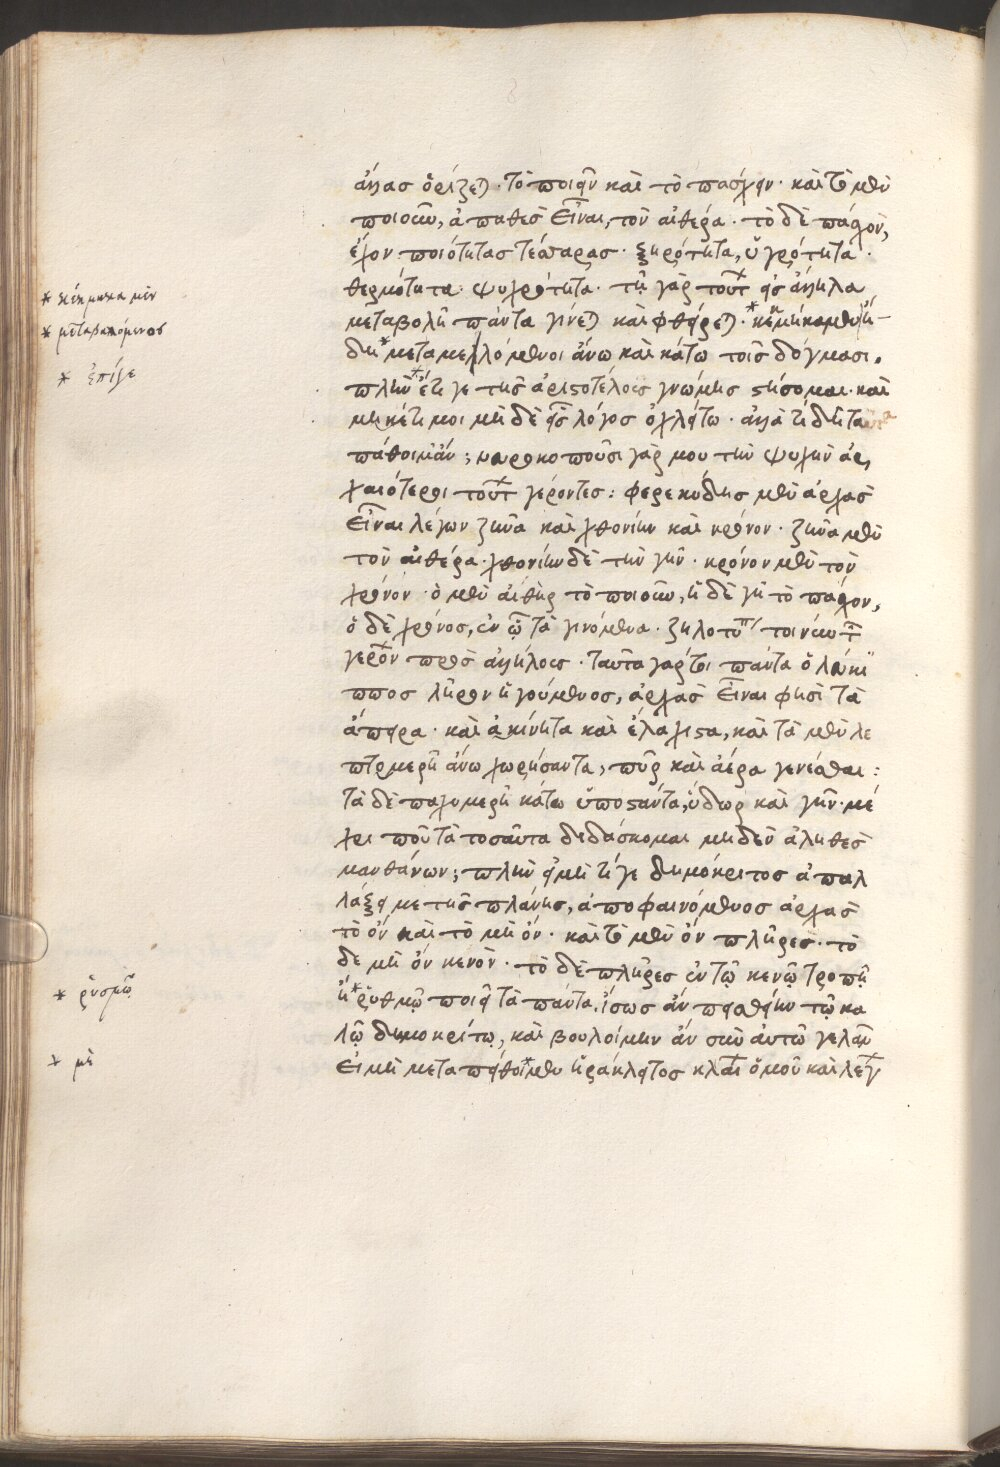 ἄλλας ὁρίζετ. τὸ ποιεῖν καὶ τὸ πάσχειν. καὶ τὸ μὲν
ποιοῦν, ἀπαθὲς εἶναι, τὸν αἰθέρα. τὸ δὲ πάσχον,
ἔχον ποιότητας τέσσαρας. ξηρότητα, ὑγρότητα.
θερμότητα. ψυχρότητα. τῇ γὰρ τούτ εἰς ἄλληλα
* κέκμηκα μὲν
μεταβολῇ πάντα γίνετ καὶ φθείρετ. *
* μεταβαλλόμενος
δη * μεταμελλόμενοι ἄνω καὶ κάτω τοῖς δόγμασι.
* ἐπί γε
πλὴν * ἔτι γε τῆς ἀριστοτέλους γνώμης στήσομαι. καὶ
μηκέτι μοι μηδὲ εἷς λόγος ὀχλείτω. ἀλλὰ τί δῆτα
πάθοιμ' ἄν; νευροκοποῦσι γάρ μου τὴν ψυχὴν ἀρ
χαιότεροι τούτ γέροντες: φερεκύδης μὲν ἀρχὰς
εἶναι λέγων ζῆνα καὶ χθονίην καὶ κρόνον. ζῆνα μὲν
τὸν αἰθέρα. χθονίην δὲ τὴν γῆν. κρόνον μὲν τὸν
χρόνον. ὁ μὲν αἰθὴρ τὸ ποιοῦν, ἡ δὲ γῆ τὸ πάσχον,
ὁ δὲ χρόνος, ἐν ᾧ τὰ γινόμενα. ζηλοτυπ τοίνυν τ
γερόν πρὸς ἀλλήλους. ταῦτα γάρ τοι πάντα ὁ λεύκι
ππος λῆρον ἡγούμενος, ἀρχὰς εἶναι φησὶ τὰ
ἄπειρα. καὶ ἀκίνητα καὶ ἐλάχιστα, καὶ τὰ μὲν λε
πτομερῆ ἄνω χωρήσαντα, πῦρ καὶ ἀέρα γενέσθαι:
τὰ δὲ παχυμερῆ κάτω ὑποστάντα, ὕδωρ καὶ γῆν. μέ
χρι ποῦ τὰ τοσαῦτα διδάσκομαι μηδὲν ἀληθὲς
μανθάνων; πλὴν εἰ μή τί γε δημόκριτος ἀπαλ
λάξει με τῆς πλάνης, ἀποφαινόμενος ἀρχὰς
τὸ ὂν καὶ τὸ μὴ ὄν. καὶ τὸ μὲν ὂν πλῆρες. τὸ
δὲ μὴ ὂν κενόν. τὸ δὲ πλῆρες ἐν τῷ κενῷ τροπῇ
* ῥυσμῷ
ἢ * ῥυθμῷ ποιεῖ τὰ πάντα. ἴσως ἂν πεισθείην τῷ κα
λῷ δημοκρίτῳ, καὶ βουλοίμην ἂν σὺν αὐτῷ γελᾶν
* μὲ
εἰ μὴ μεταπείθοι * μεν ἡράκλειτος κλαί ὁμοῦ καὶ λέγ